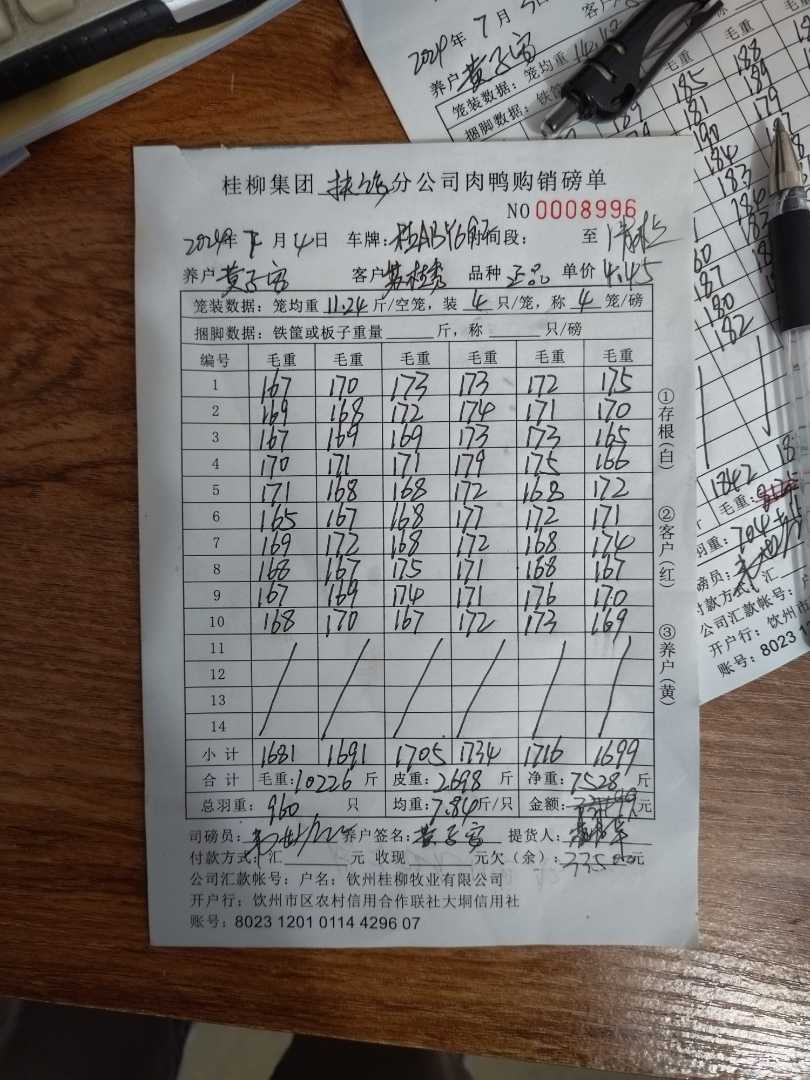 桂柳集团 扶绥 分公司肉鸭购销磅单
NO 0008996
2024年 7 月 4 日 车牌: 时间段: 至
养户 黄子富 客户 品种 正品 单价 4.45
笼装数据: 笼均重 11.24 斤/空笼, 装 4 只/笼, 称 4 笼/磅
捆脚数据: 铁筐或板子重量 斤, 称 只/磅
编号 毛重 毛重 毛重 毛重 毛重 毛重
1 167 170 173 173 172 175
2 169 168 172 174 171 170
3 167 169 169 173 173 165
4 170 171 171 179 175 166
5 171 168 168 172 168 172
6 165 167 168 177 172 171
7 169 172 168 172 168 174
8 168 167 175 171 168 167
9 167 169 174 171 176 170
10 168 170 167 172 173 169
11
12
13
14
小计 1681 1691 1705 1734 1716 1699
合计 毛重: 10226 斤 皮重: 2698 斤 净重: 7528 斤
总羽重: 960 只 均重: 7.84 斤/只 金额: 元
司磅员: 养户签名: 黄子富 提货人:
付款方式: 汇 元 收现 元欠(余): 33500元
公司汇款帐号: 户名: 钦州桂柳牧业有限公司
开户行: 钦州市区农村信用合作联社大垌信用社
账号: 8023 1201 0114 4296 07
①存根(白)
②客户(红)
③养户(黄)
2024年 7 月
养户 黄子富
笼装数据: 笼均重
捆脚数据: 铁
毛重
185 188
189 181 189
190 179
184
183
184
187
180
182
1842
毛重:
羽重: 704
磅员:
付款方式: 汇
公司汇款帐号:
开户行: 钦州
账号: 8023 1